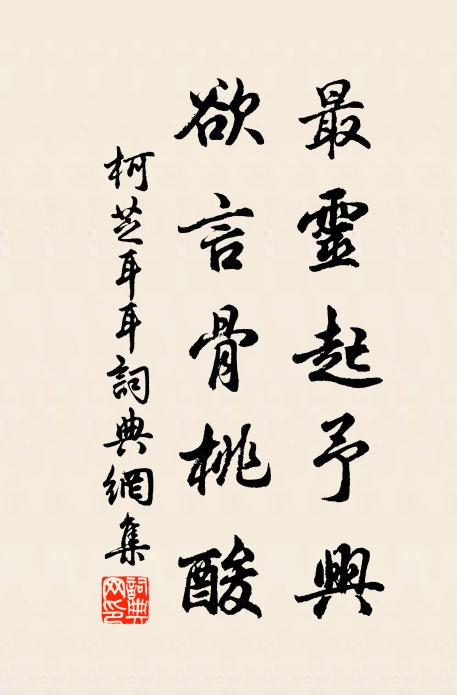 最靈起予興
欲言骨桃酸
柯芝耳耳詞典網集
詞典網印